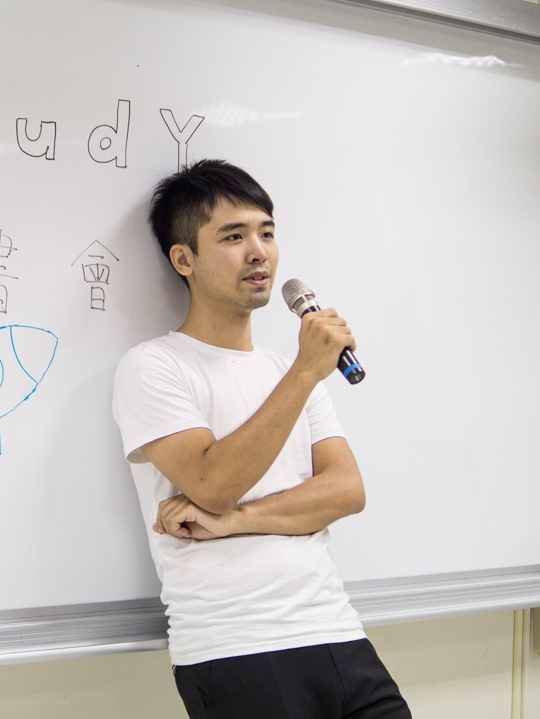 udy
書會